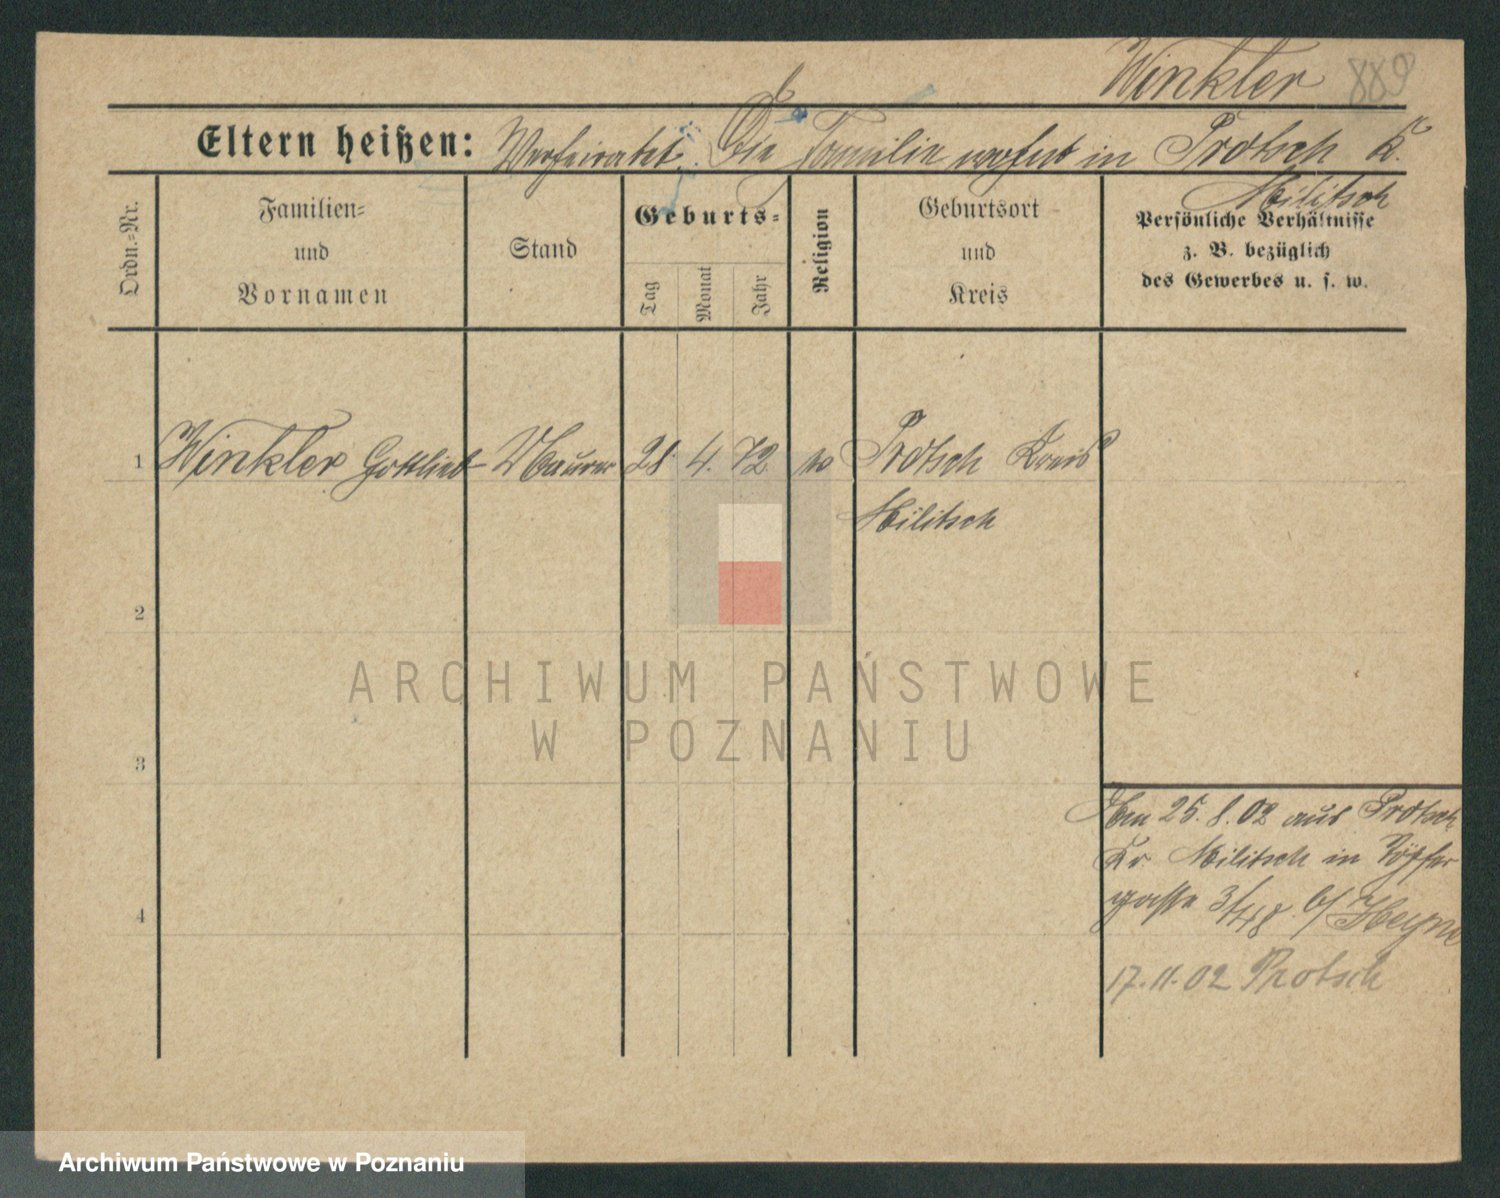 Winkler 889
Eltern heißen: Verheiratet. Die Familie wohnt in Protsch K.
Militsch
Ordn.-Nr.
Familien-
und
Vornamen
Stand
Geburts-
Tag
Monat
Jahr
Religion
Geburtsort
und
Kreis
Persönliche Verhältnisse
z. B. bezüglich
des Gewerbes u. s. w.
1 Winkler Gottlieb Maurer 28. 4. 72 Protsch Kreis
Militsch
2
3
4
Den 25. 8. 02 aus Protsch
Kr. Militsch in Töpfer
gasse 3/48 b/ Heyne
17. 11. 02 Protsch
ARCHIWUM PAŃSTWOWE
W POZNANIU
Archiwum Państwowe w Poznaniu